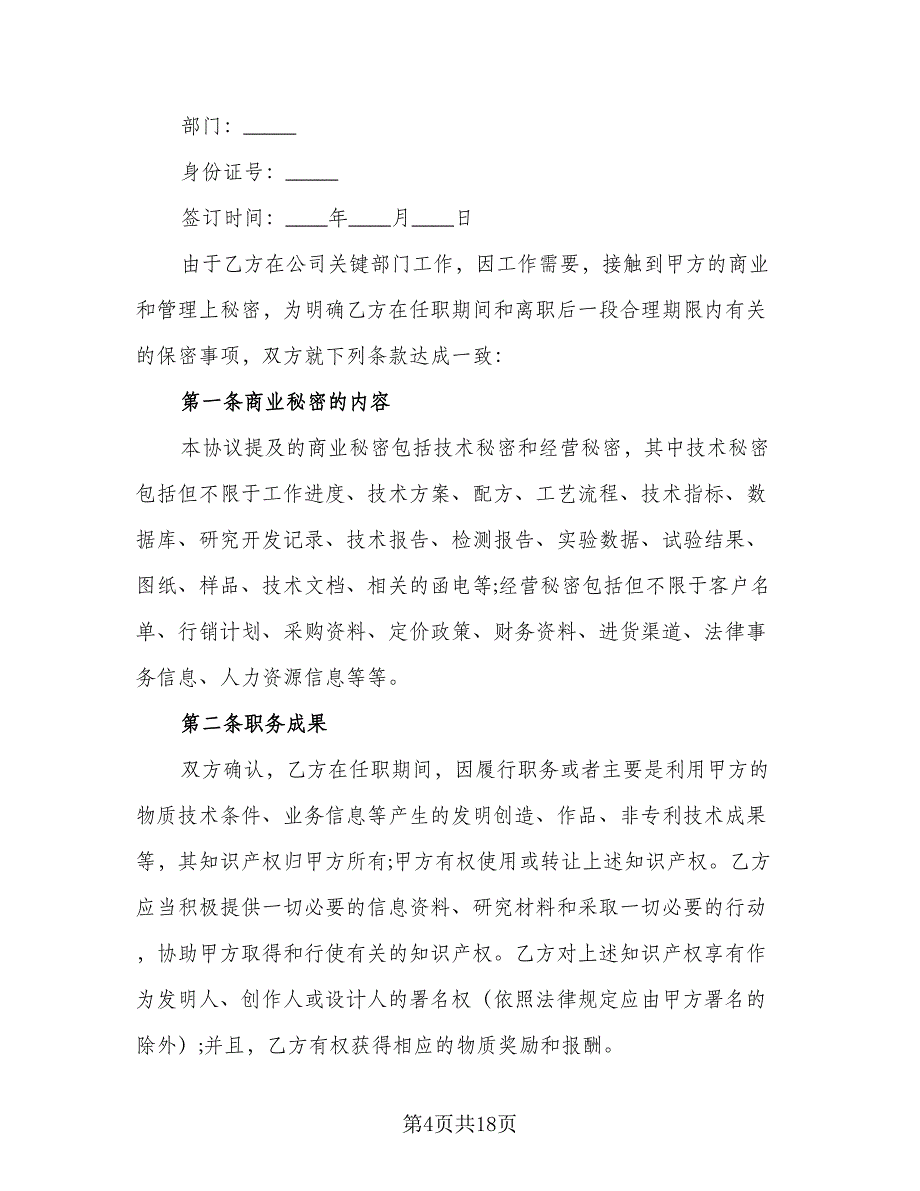 部门：_____
身份证号：_____
签订时间：____年____月____日
由于乙方在公司关键部门工作，因工作需要，接触到甲方的商业
和管理上秘密，为明确乙方在任职期间和离职后一段合理期限内有关
的保密事项，双方就下列条款达成一致：
第一条商业秘密的内容
本协议提及的商业秘密包括技术秘密和经营秘密，其中技术秘密
包括但不限于工作进度、技术方案、配方、工艺流程、技术指标、数
据库、研究开发记录、技术报告、检测报告、实验数据、试验结果、
图纸、样品、技术文档、相关的函电等;经营秘密包括但不限于客户名
单、行销计划、采购资料、定价政策、财务资料、进货渠道、法律事
务信息、人力资源信息等等。
第二条职务成果
双方确认，乙方在任职期间，因履行职务或者主要是利用甲方的
物质技术条件、业务信息等产生的发明创造、作品、非专利技术成果
等，其知识产权归甲方所有;甲方有权使用或转让上述知识产权。乙方
应当积极提供一切必要的信息资料、研究材料和采取一切必要的行动
，协助甲方取得和行使有关的知识产权。乙方对上述知识产权享有作
为发明人、创作人或设计人的署名权（依照法律规定应由甲方署名的
除外）;并且，乙方有权获得相应的物质奖励和报酬。
第4页共18页